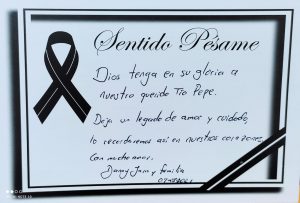 Sentido Pésame
Dios tenga en su gloria a
nuestro querido Tío Pepe.
Deja un legado de amor y cuidado,
lo recordaremos así en nuestros corazones
Con mucho amor,
y familia